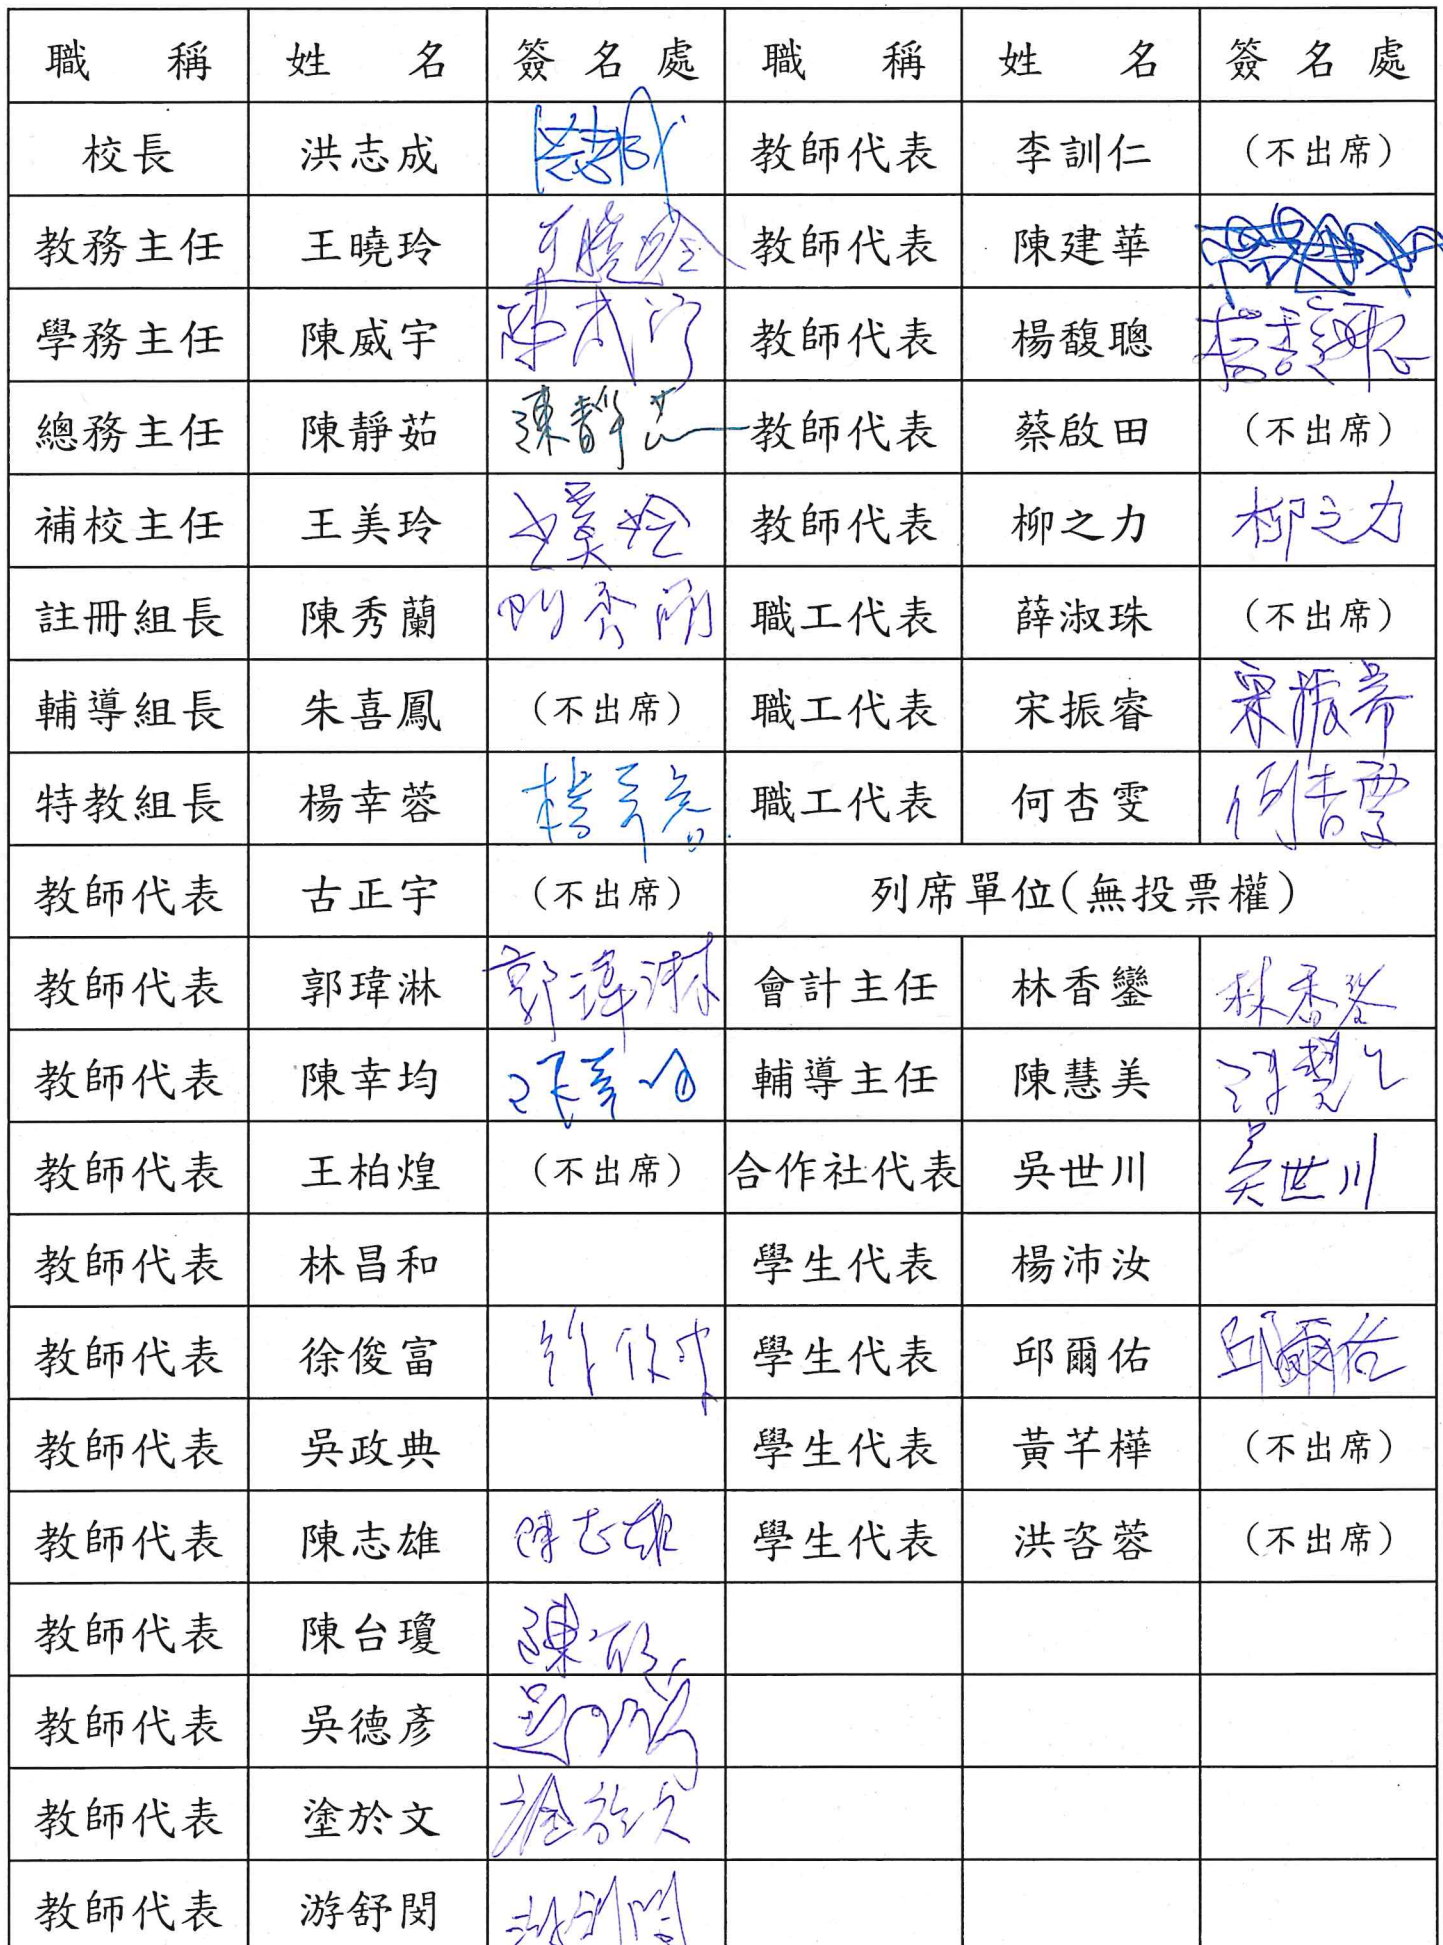 職稱 姓名 簽名處 職稱 姓名 簽名處
校長 洪志成 洪志成 教師代表 李訓仁 (不出席)
教務主任 王曉玲 王曉玲 教師代表 陳建華
學務主任 陳威宇 陳威宇 教師代表 楊馥聰 楊馥聰
總務主任 陳靜茹 陳靜茹 教師代表 蔡啟田 (不出席)
補校主任 王美玲 王美玲 教師代表 柳之力 柳之力
註冊組長 陳秀蘭 陳秀蘭 職工代表 薛淑珠 (不出席)
輔導組長 朱喜鳳 (不出席) 職工代表 宋振睿 宋振睿
特教組長 楊幸蓉 楊幸蓉 職工代表 何杏雯 何杏雯
教師代表 古正宇 (不出席) 列席單位(無投票權)
教師代表 郭瑋淋 郭瑋淋 會計主任 林香鑾 林香鑾
教師代表 陳幸均 陳幸均 輔導主任 陳慧美 陳慧美
教師代表 王柏煌 (不出席) 合作社代表 吳世川 吳世川
教師代表 林昌和 學生代表 楊沛汝
教師代表 徐俊富 徐俊富 學生代表 邱爾佑 邱爾佑
教師代表 吳政典 學生代表 黃芊樺 (不出席)
教師代表 陳志雄 陳志雄 學生代表 洪咨蓉 (不出席)
教師代表 陳台瓊
教師代表 吳德彥
教師代表 塗於文 塗於文
教師代表 游舒閔 游舒閔